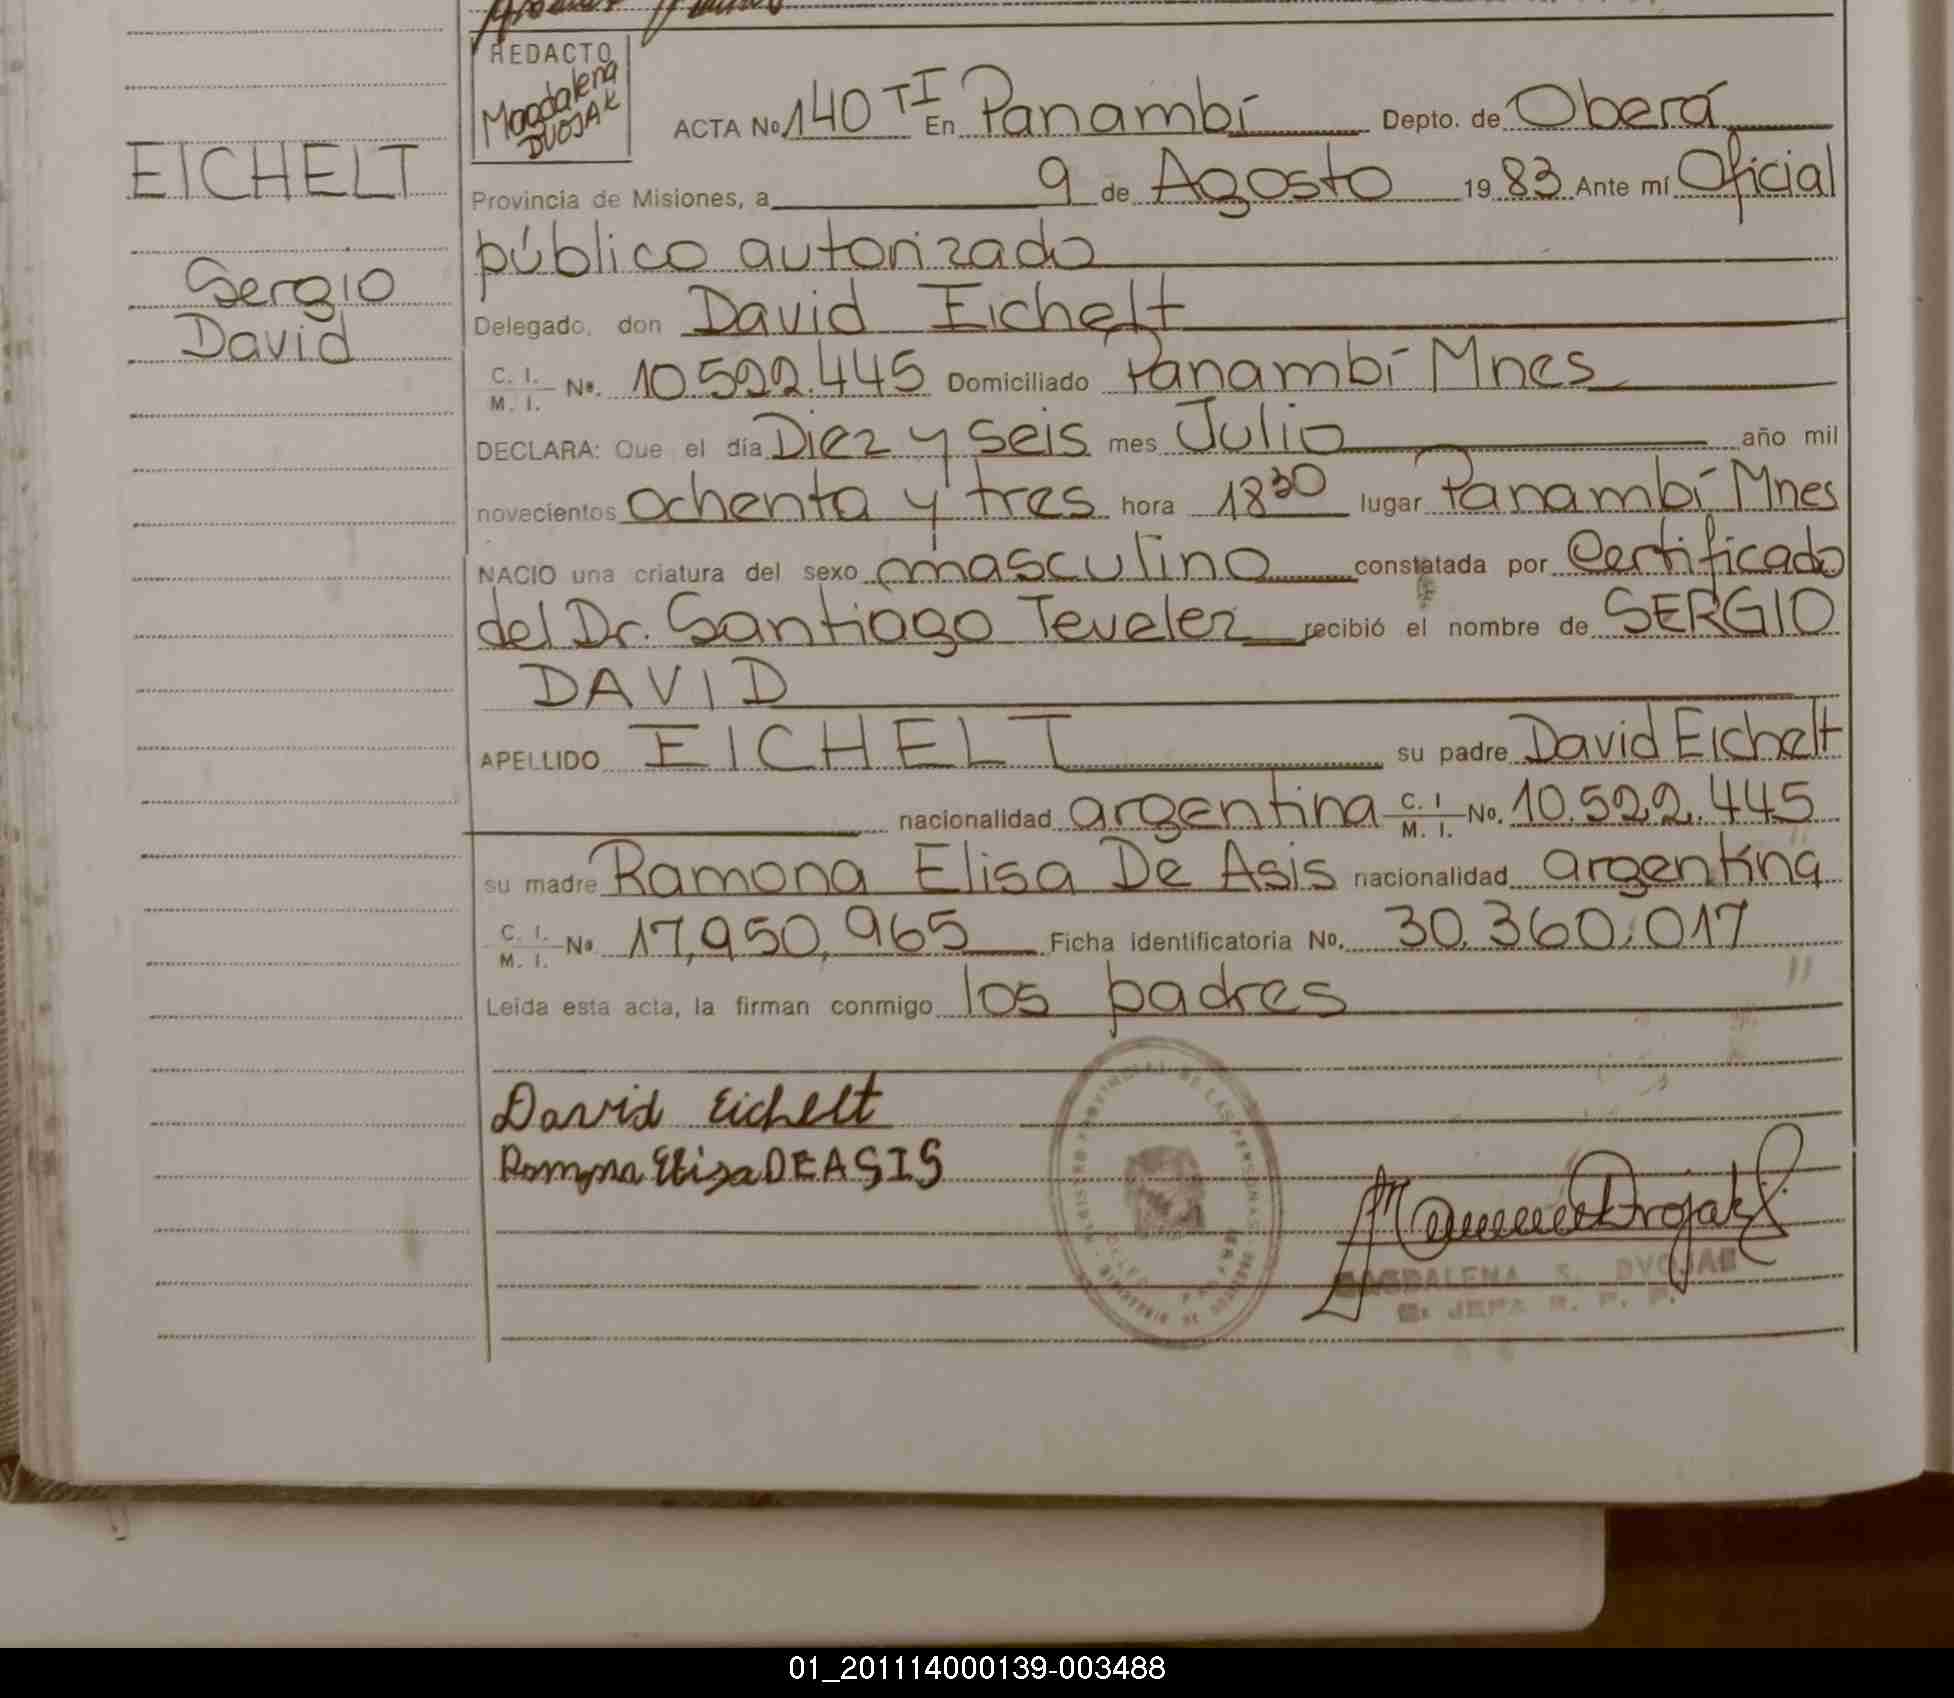 REDACTO
Magdalena
DVOJAK
ACTA No 140 TI En Panambí Depto. de Oberá
EICHELT
Provincia de Misiones, a 9 de Agosto 19 83 Ante mí Oficial
público autorizado
Sergio
David
Delegado, don David Eichelt
C. I. M. I. No. 10.522.445 Domiciliado Panambí Mnes
DECLARA: Que el día Diez y seis mes Julio año mil
novecientos ochenta y tres hora 18 30 lugar Panambí Mnes
NACIO una criatura del sexo masculino constatada por Certificado
del Dr. Santiago Tevelez recibió el nombre de SERGIO
DAVID
APELLIDO EICHELT su padre David Eichelt
nacionalidad argentina C. I M. I. No. 10.522.445
su madre Ramona Elisa De Asis nacionalidad argentina
C. I. M. I. No 17,950,965 Ficha identificatoria No. 30.360.017
Leída esta acta, la firman conmigo los padres
David Eichelt
Ramona Elisa DEASIS
MAGDALENA S. DVOJAK
JEFA R. P. P.
01_201114000139-003488